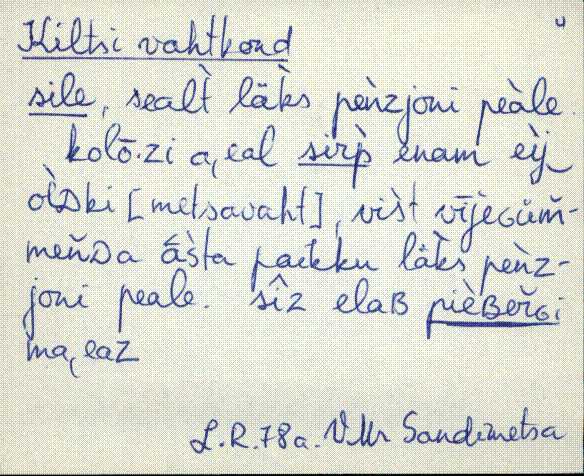 Kiltsi vahtkond
sile, sealt̀ läk̀s pèǹzjoni peàle.
kolō.zi a, eal sir̀p̀ enam eìj
òlD̀ski [metsavaht], vis̀t vījeGüm̆-
meǹDa ás̀ta paikku läk̀s pèǹz-
joni peale. sîz elaB pièBer̆Gi
ma, eaz
L.R. 78a. V.Mr Sandimetsa